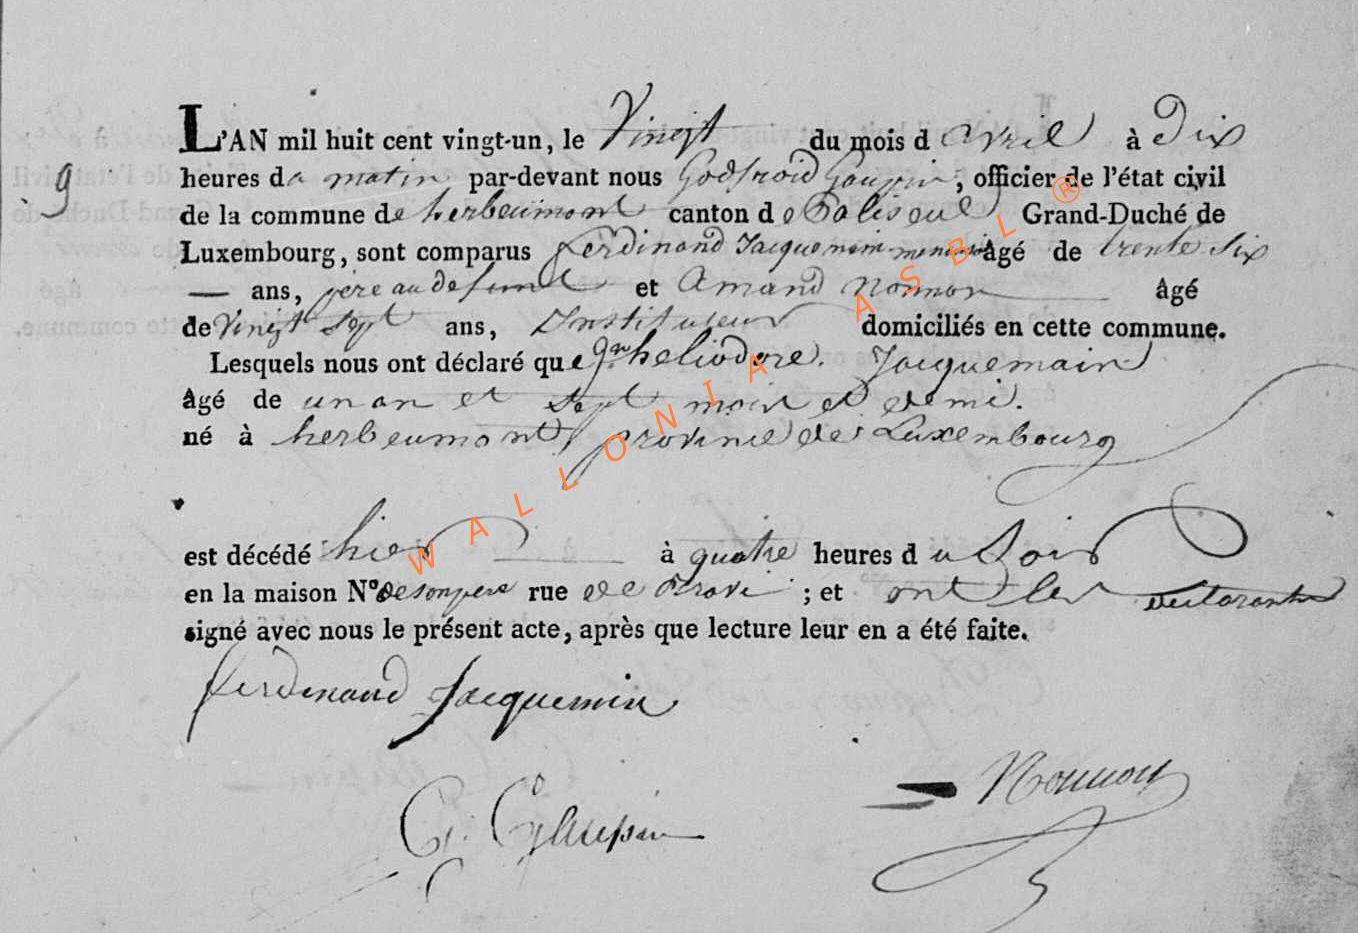 9
L'AN mil huit cent vingt-un, le Vingt du mois d avril à Dix
heures du matin par-devant nous Godfroid Gaupin, officier de l'état civil
de la commune de herbeumont canton de Paliseul Grand-Duché de
Luxembourg, sont comparus ferdinand Jacquemin âgé de trente Six
— ans, père au defunt et Amand Nonnon âgé
de Vingt Sept ans, Instituteur domiciliés en cette commune.
Lesquels nous ont déclaré que heliodore. Jacquemain
âgé de un an et Sept mois et demi.
né à herbeumont province de Luxembourg
est décédé hier à quatre heures du Soir
en la maison N° de son pere rue de ; et ont les declarants
signé avec nous le présent acte, après que lecture leur en a été faite.
ferdinand Jacquemin
G. Gaupin
Nonnon
WALLONIA ASBL®